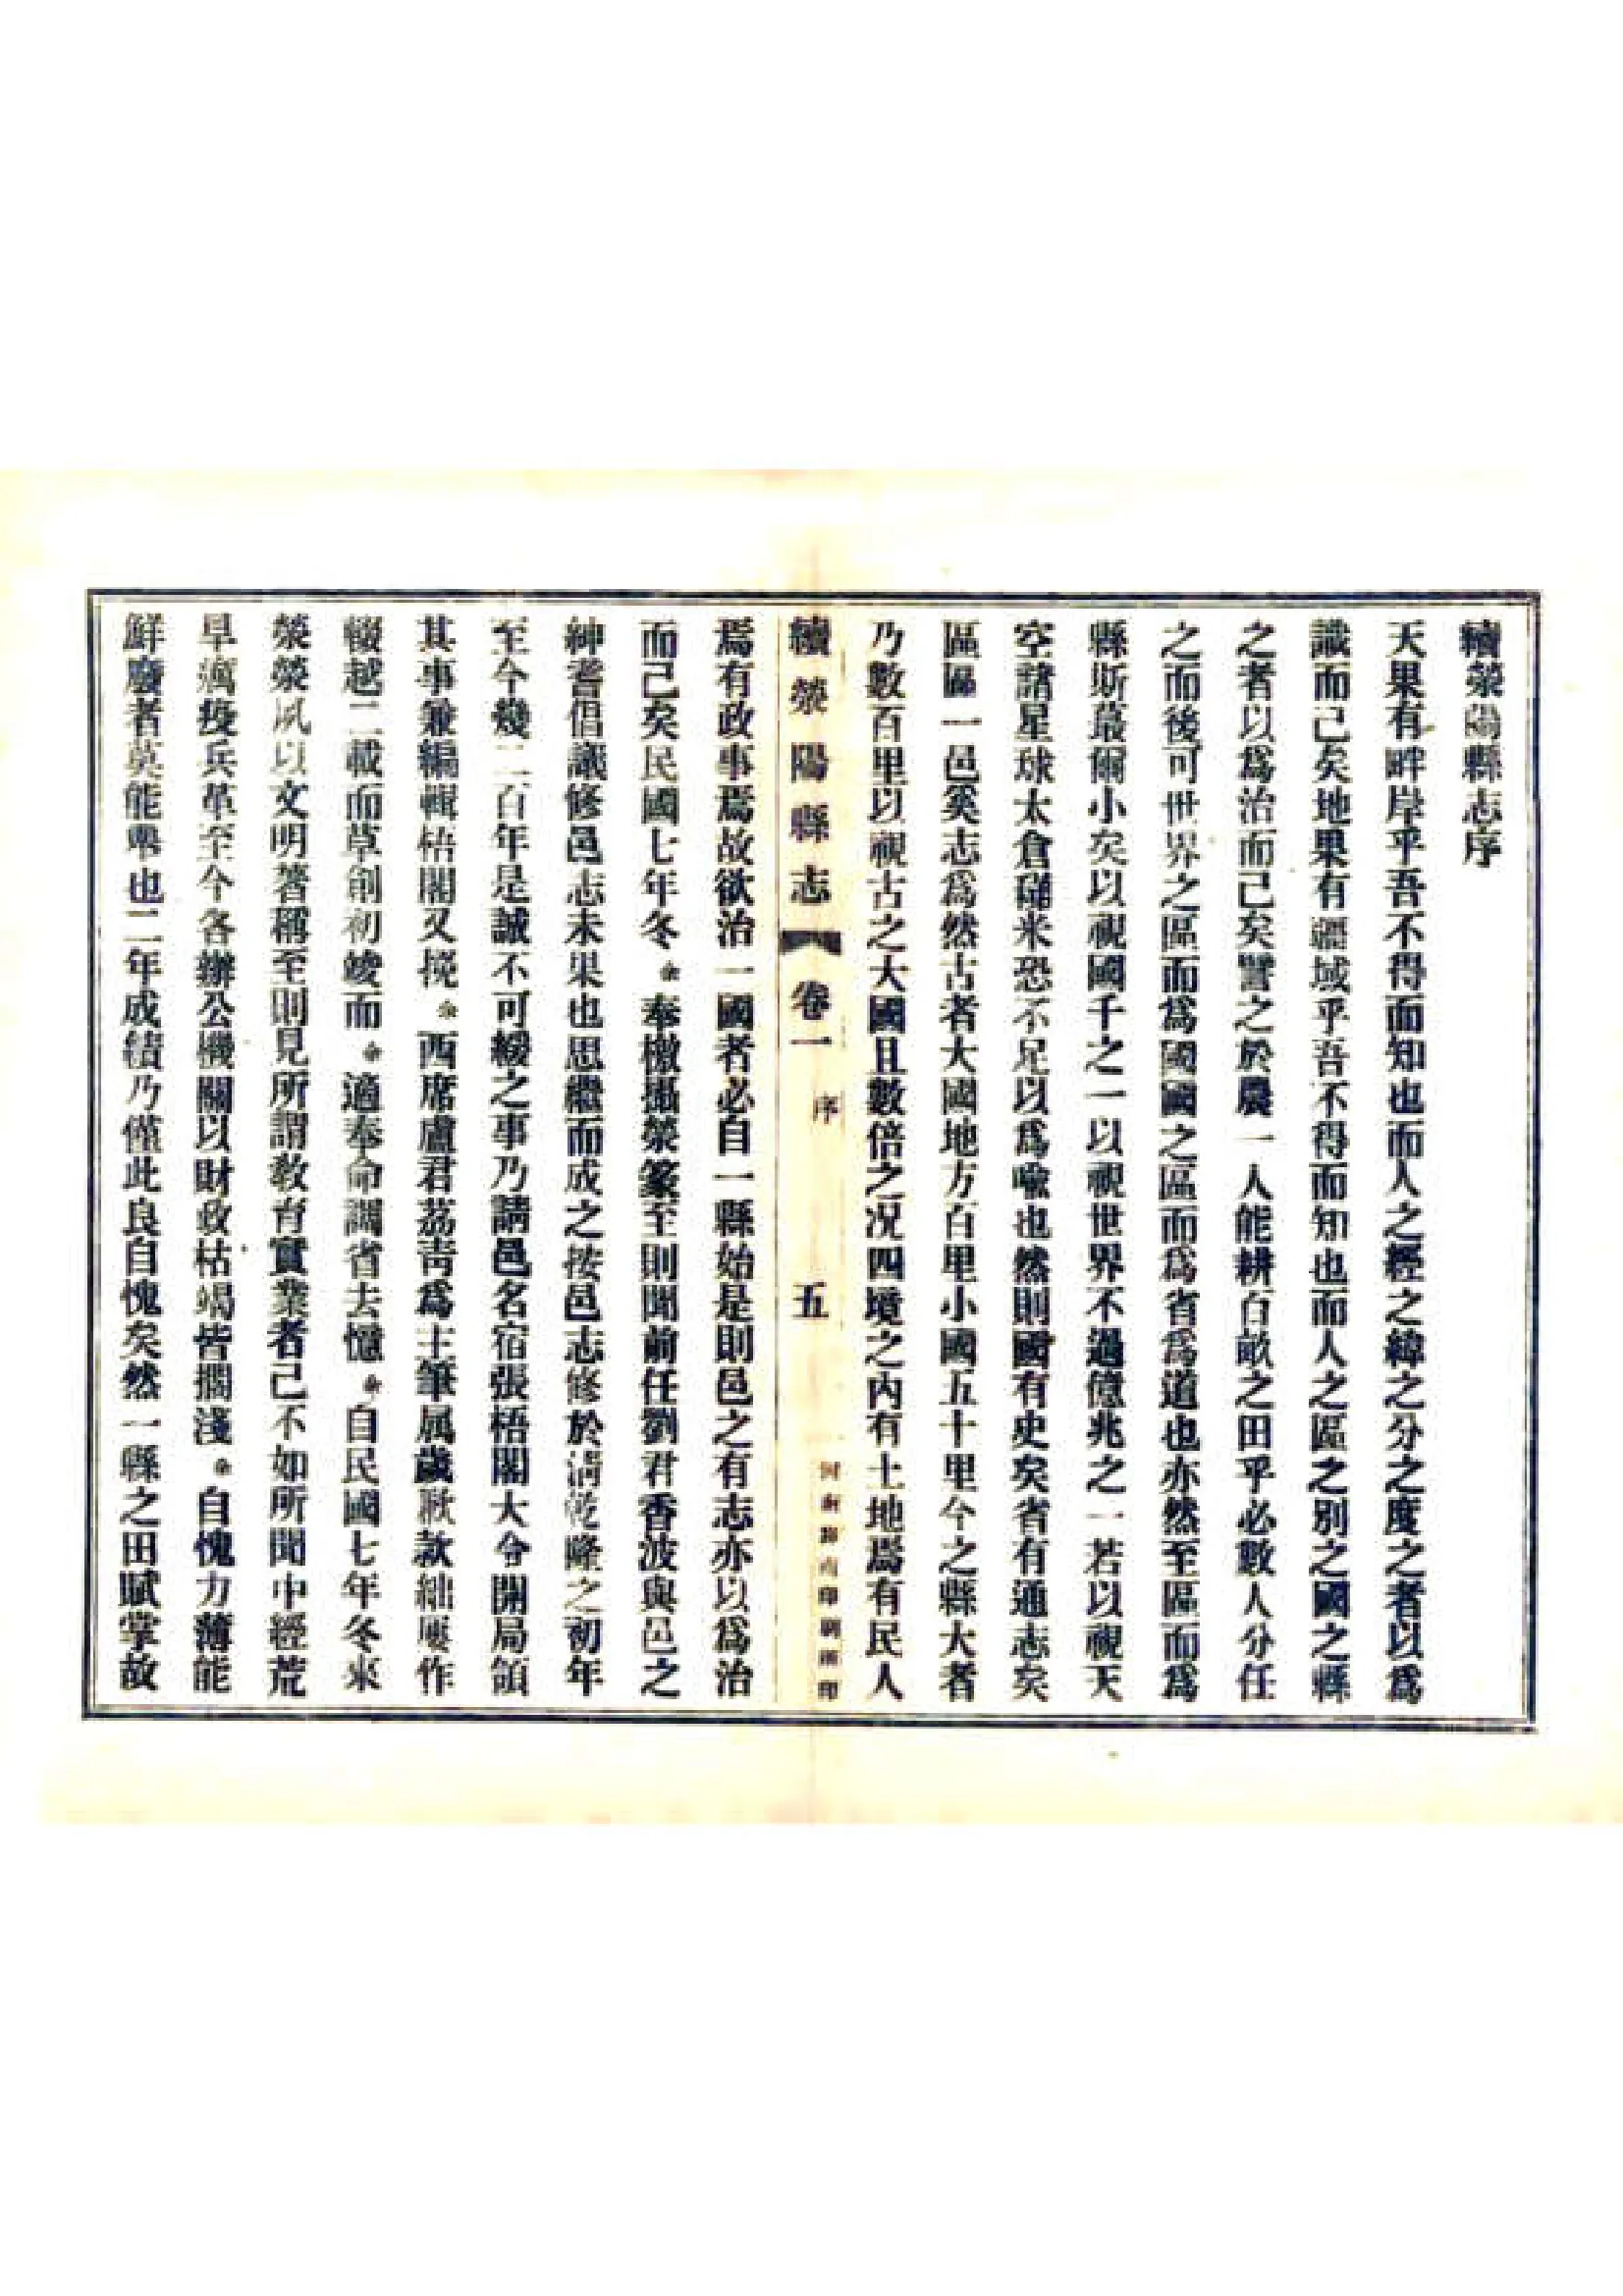 續滎陽縣志序
天果有畔岸乎吾不得而知也而人之經之緯之分之度之者以爲
識而已矣地果有疆域乎吾不得而知也而人之區之別之國之縣
之者以爲治而已矣譬之於農一人能耕百畝之田乎必數人分任
之而後可世界之區而爲國國之區而爲省爲道也亦然至區而爲
縣斯蕞爾小矣以視國千之一以視世界不過億兆之一若以視天
空諸星球太倉稊米恐不足以爲喻也然則國有史矣省有通志矣
區區一邑奚志爲然古者大國地方百里小國五十里今之縣大者
乃數百里以視古之大國且數倍之况四境之內有土地焉有民人
續滎陽縣志 卷一 序 五 河南 印刷所印
焉有政事焉故欲治一國者必自一縣始是則邑之有志亦以爲治
而已矣民國七年冬余奉檄攝滎篆至則聞前任劉君香波與邑之
紳耆倡議修邑志未果也思繼而成之按邑志修於清乾隆之初年
至今幾二百年是誠不可緩之事乃請邑名宿張梧閣大令開局領
其事兼編輯梧閣又挽余西席盧君荔青爲主筆属歲歉款絀屢作
輟越二載而草創初竣而余適奉命調省去憶余自民國七年冬來
滎滎夙以文明著稱至則見所謂教育實業者已不如所聞中經荒
旱瘟疫兵革至今各辦公機關以財政枯竭皆擱淺余自愧力薄能
鮮廢者莫能舉也二年成績乃僅此良自愧矣然一縣之田賦掌故